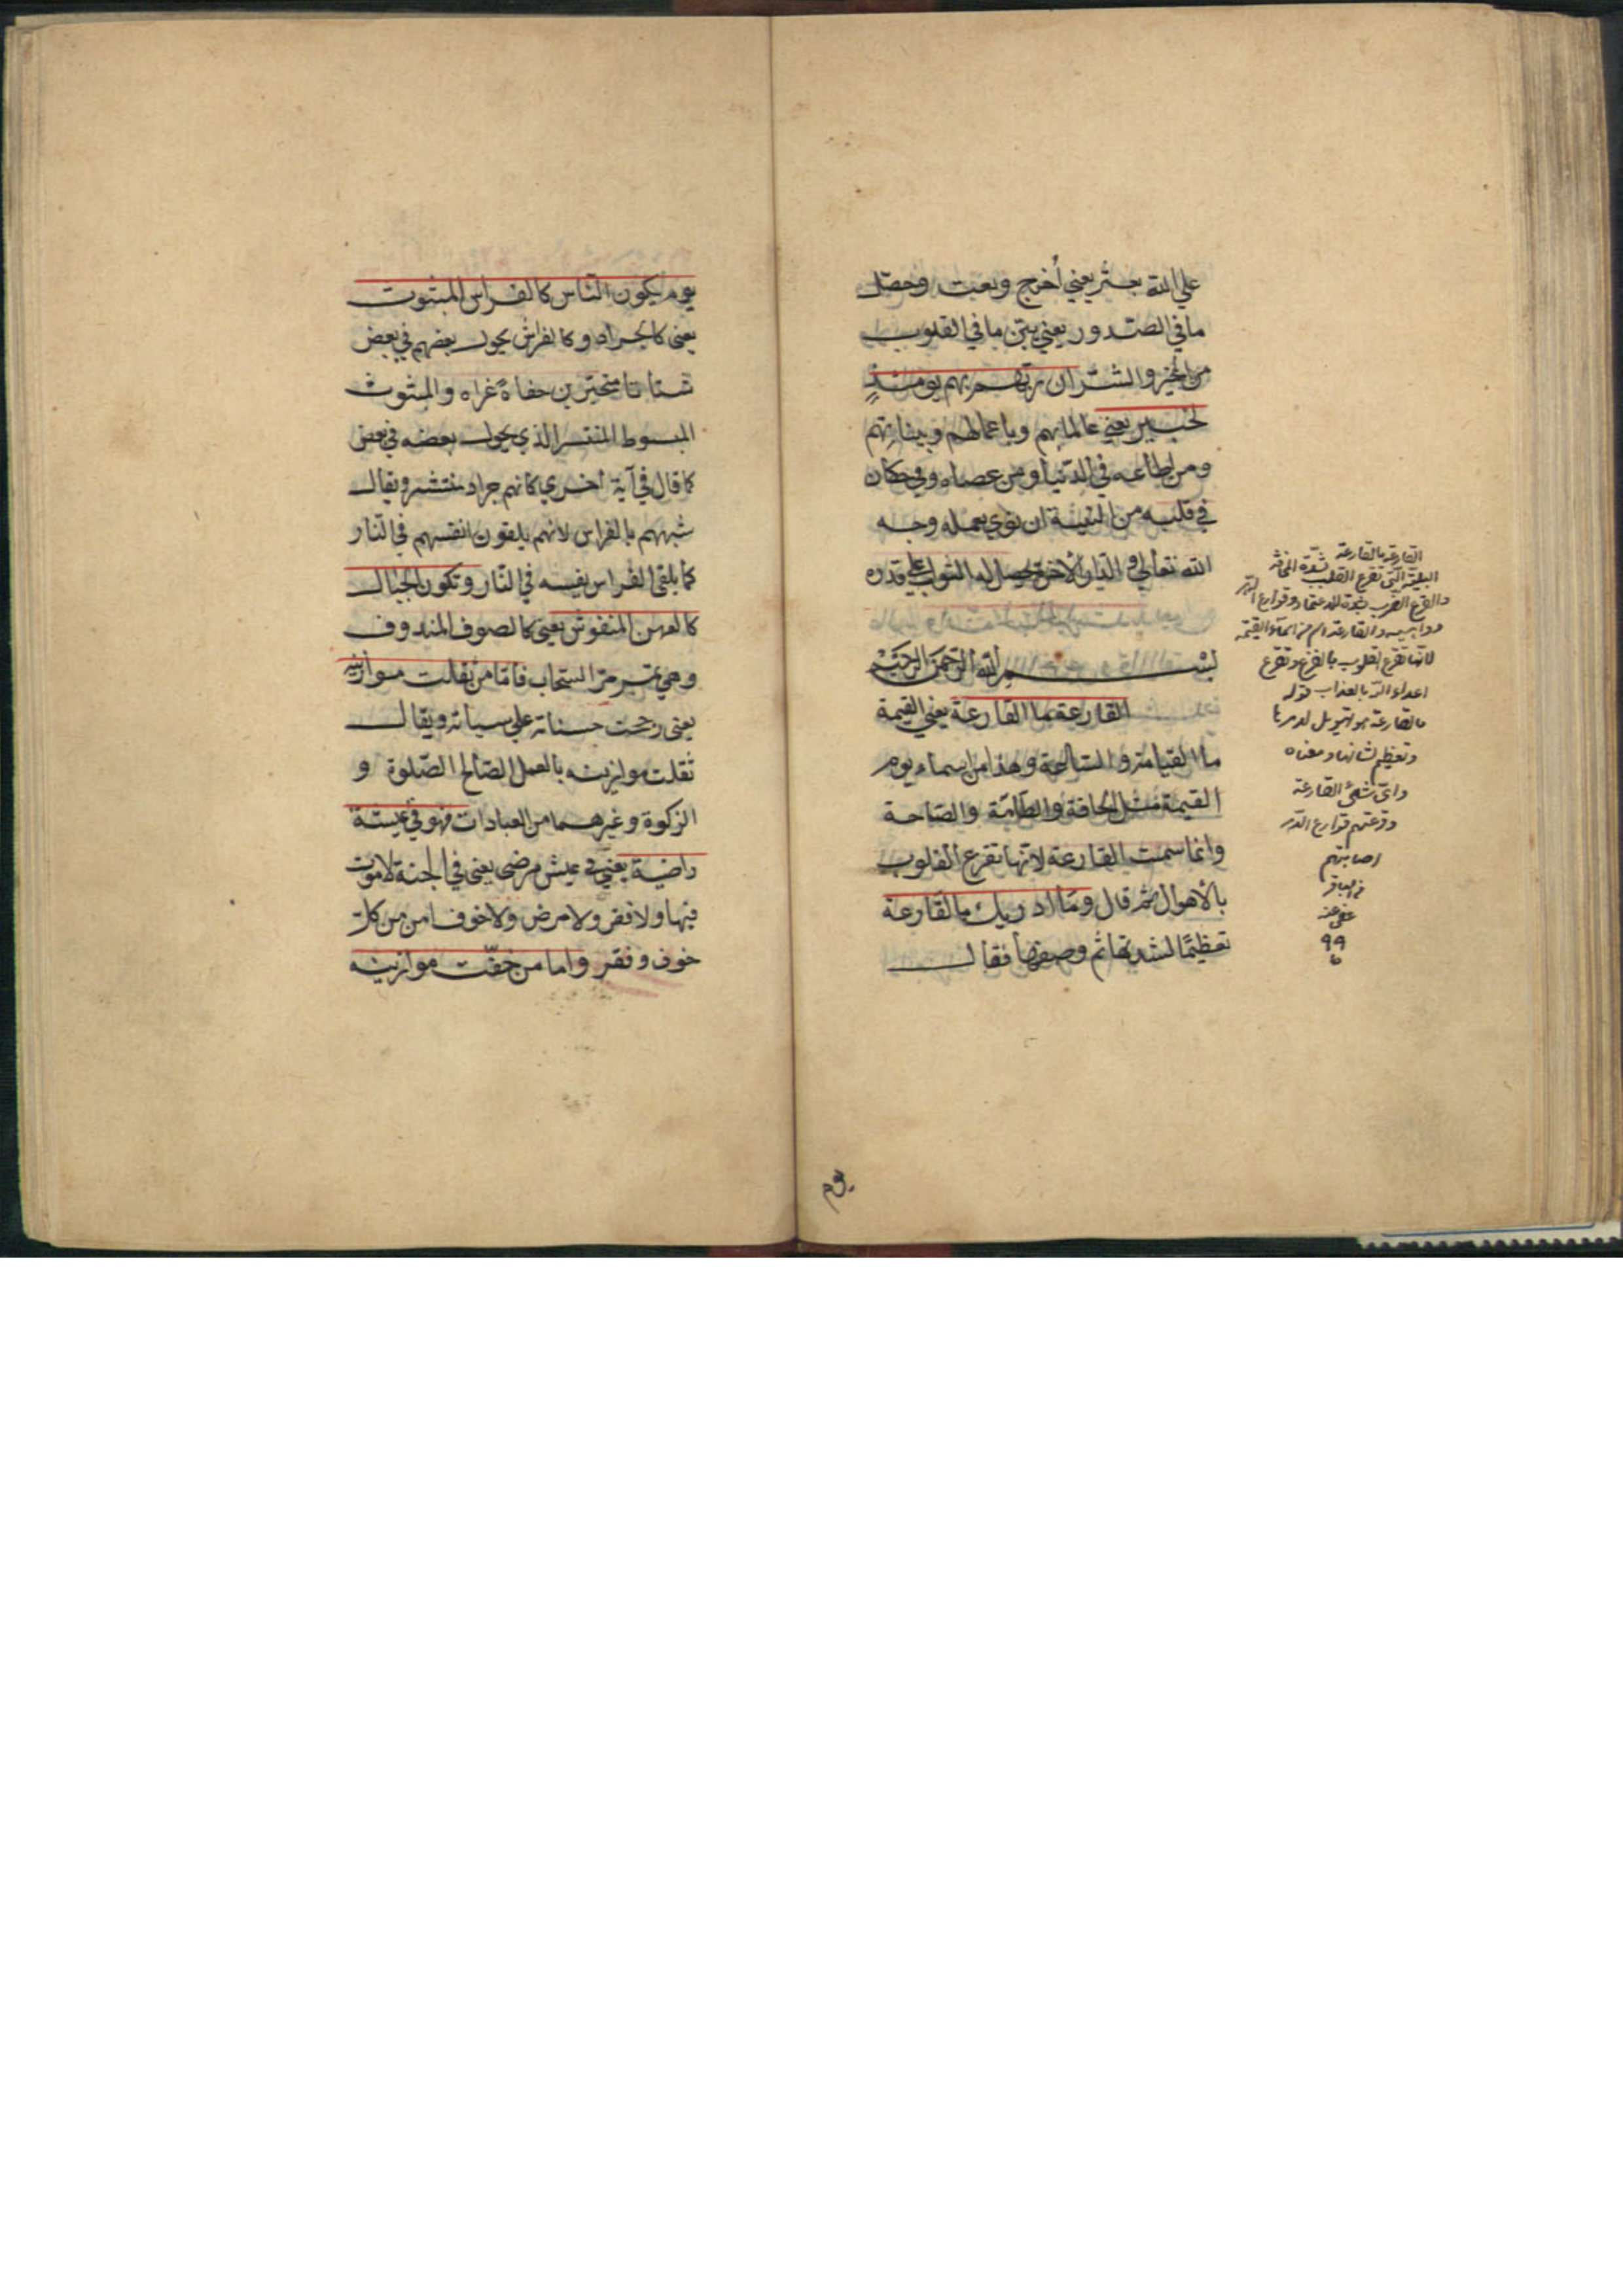 علي الله بحثر يعني أخرج وبعث وحصل
ما في الصدور يعني يبين ما في القلوب
من الخير والشر ان ربهم بهم يومئذٍ
لخبير يعني عالما بهم وباعمالهم وبنياتهم
ومن اطاعه في الدنيا ومن عصاه وفي كان
في قلبه من النية ان نوي بعمله وجه
الله تعالي و الدار الآخرة يحصل له الثواب علي قدره
بسم الله الرحمن الرحيم
القارعة ما القارعة يعني القيمة
ما القيامة و الساعة وهذا من اسماء يوم
القيمة مثل الحاقة والطامّة والصاخة
وانما سميت القارعة لانها تقرع القلوب
بالأهوال ثم قال وما ادريك ما القارعة
تعظيمًا لشدتها ثم وصفها فقال
القارعة ما القارعة
البلية التي تقرع القلب بشدة المخافة
والقرع الضرب بشدة الاعتماد وقوارع الدهر
دواهيه والقارعة اسم من اسماء القيمة
لانها تقرع القلوب بالفزع وتقرع
اعداء الله بالعذاب قوله
ما القارعة هو تهويل لامرها
وتعظيم لشانها ومعناه
واي شئ القارعة
وقرعتهم قوارع الدهر
اصابتهم
عفي عنه
٩٩
يوم
يوم يكون الناس كالفراش المبثوث
يعني كالجراد وكالفراش يجول بعضهم في بعض
شتاتا متحيرين حفاة عراه والمبثوث
المبسوط المنتشر الذي يجول بعضه في بعض
كما قال في آية اخري كانهم جراد منتشر ويقال
شبههم بالفراش لانهم يلقون انفسهم في النار
كما يلقي الفراش نفسه في النار وتكون الجبال
كالعهن المنفوش يعني كالصوف المندوف
وهي تمر مر السحاب فاما من ثقلت موازينه
يعني رجحت حسناته علي سيأته ويقال
ثقلت موازينه بالعمل الصالح الصلوة و
الزكوة وغيرهما من العبادات فهو في عيشة
راضية يعني في عيش مرضي يعني في الجنة لا موت
فيها ولا فقر ولا مرض ولا خوف امن من كل
خوف وفقر واما من خفّت موازينه